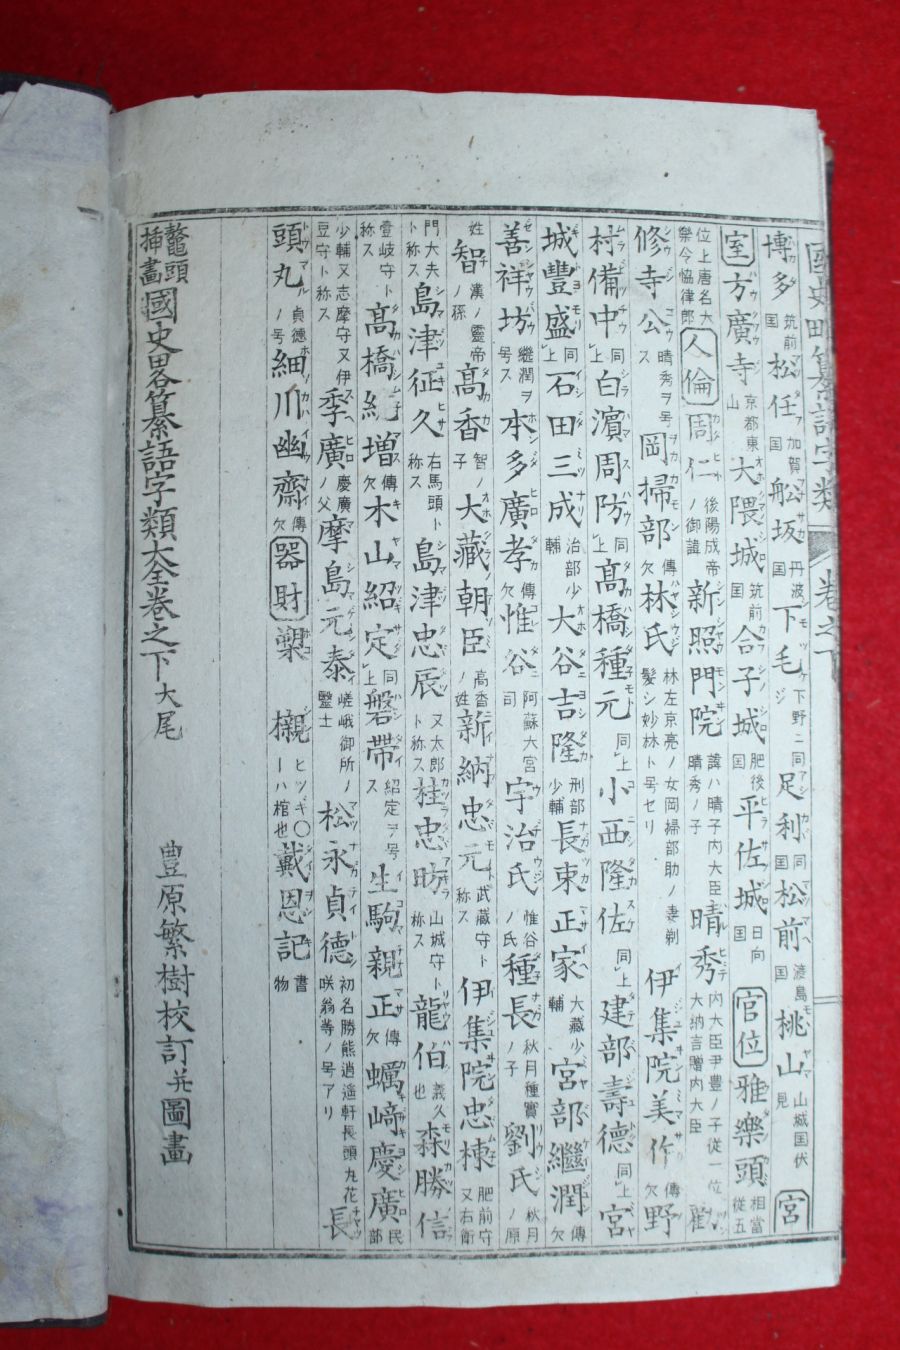 國史略纂語字類 卷之下
博多 筑前国 松任 加賀国 船坂 丹波国 下毛 下野ニ同ジ 足利 同国 松前 渡島国 桃山 山城国伏見 宮
室 方廣寺 京都東山 大隈城 筑前国 合子城 肥後国 平佐城 日向国 官位 雅樂頭 相當従五
位上唐名大樂令恊律郎 人倫 周仁 後陽成帝ノ御諱 新照門院 諱ハ晴子内大臣晴秀ノ子 晴秀 内大臣尹豊ノ子従一位大納言贈内大臣 勸
修寺公 晴秀ヲ号ス 岡掃部 傳欠 林氏 林左京亮ノ女岡掃部助ノ妻剃髪シ妙林ト号セリ 伊集院美作 傳欠 野
村備中 同上 白濱周防 同上 髙橋種元 同上 小西隆佐 同上 建部壽德 同上 宮
城豐盛 同上 石田三成 治部少輔 大谷吉隆 刑部少輔 長束正家 大藏少輔 宮部繼潤 傳欠
善祥坊 繼潤ヲ号ス 本多廣孝 傳欠 惟谷 阿蘇大宮司 宇治氏 惟谷ノ氏 種長 秋月種實ノ子 劉氏 秋月ノ原
姓 智 漢ノ靈帝ノ孫 髙香 智ノ子 大藏朝臣 高香ノ姓 新納忠元 武藏守ト称ス 伊集院忠棟 肥前守又右衛
門大夫ト称ス 島津征久 右馬頭ト称ス 島津忠辰 又太郎ト称ス 桂忠昉 山城守ト称ス 龍伯 義久也 森勝信
壹岐守ト称ス 髙橋統増 傳欠 木山紹定 同上 磐帶 紹定ヲ号ス 生駒親正 傳欠 蠣﨑慶廣 民部
少輔又志摩守又伊豆守ト称ス 季廣 慶廣ノ父 摩島元泰 嵯峨御所ノ醫士 松永貞德 初名勝熊逍遥軒長頭丸花咲翁等ノ号アリ 長
頭丸 貞德ノ号 細川幽齋 傳欠 器財 槊 櫬 ヒツギ〇一ハ棺也 戴恩記 書物
鼇頭挿畫 國史畧纂語字類大全卷之下大尾
豊原繁樹校訂并圖畫